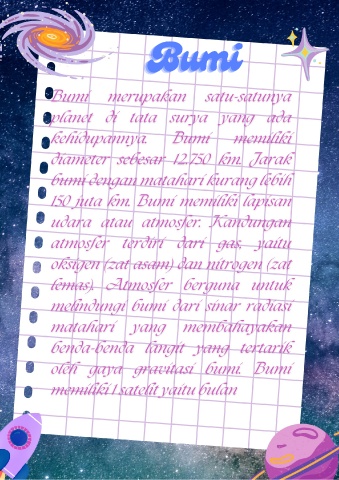 Bumi
Bumi merupakan satu-satunya
planet di tata surya yang ada
kehidupannya. Bumi memiliki
diameter sebesar 12.750 km. Jarak
bumi dengan matahari kurang lebih
150 juta km. Bumi memiliki lapisan
udara atau atmosfer. Kandungan
atmosfer terdiri dari gas, yaitu
oksigen (zat asam) dan nitrogen (zat
lemas). Atmosfer berguna untuk
melindungi bumi dari sinar radiasi
matahari yang membahayakan
benda-benda langit yang tertarik
oleh gaya gravitasi bumi. Bumi
memiliki 1 satelit yaitu bulan